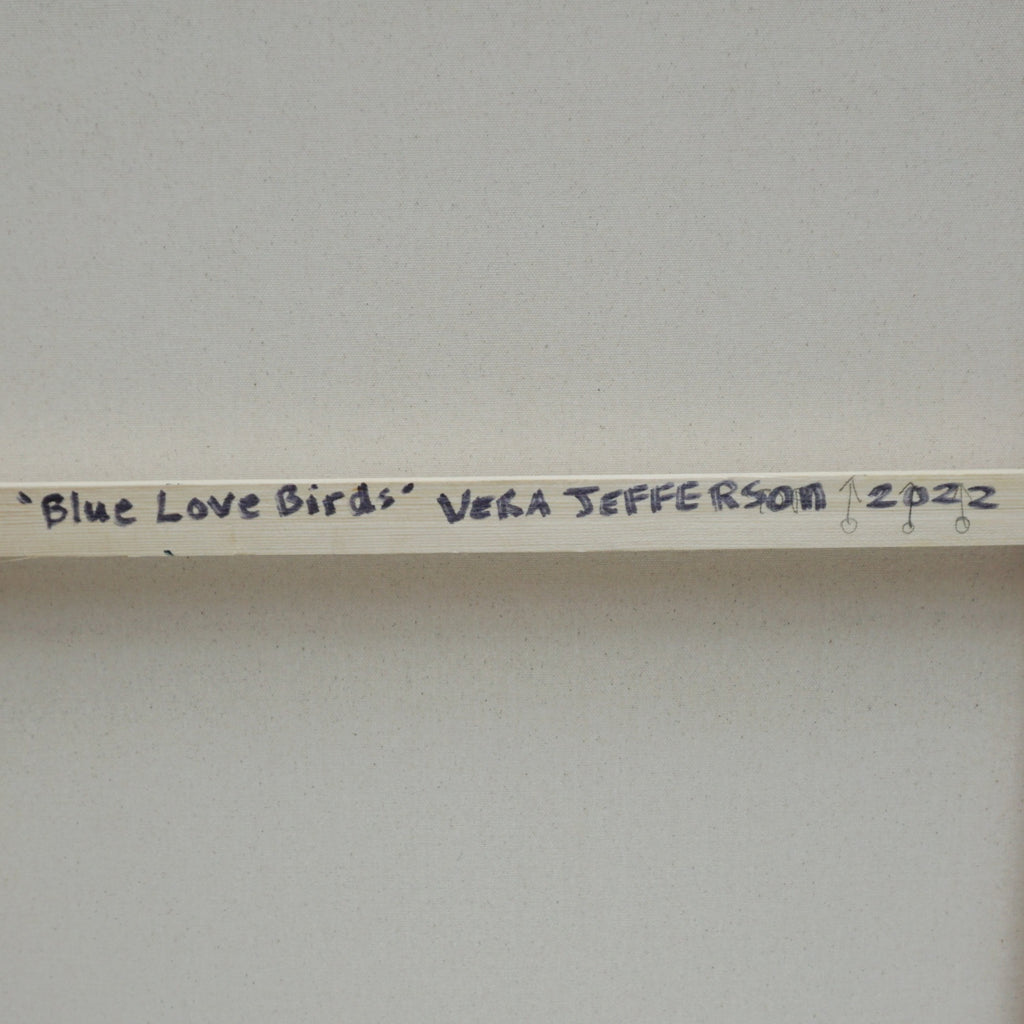 'Blue Love Birds' VERA JEFFERSON 2022